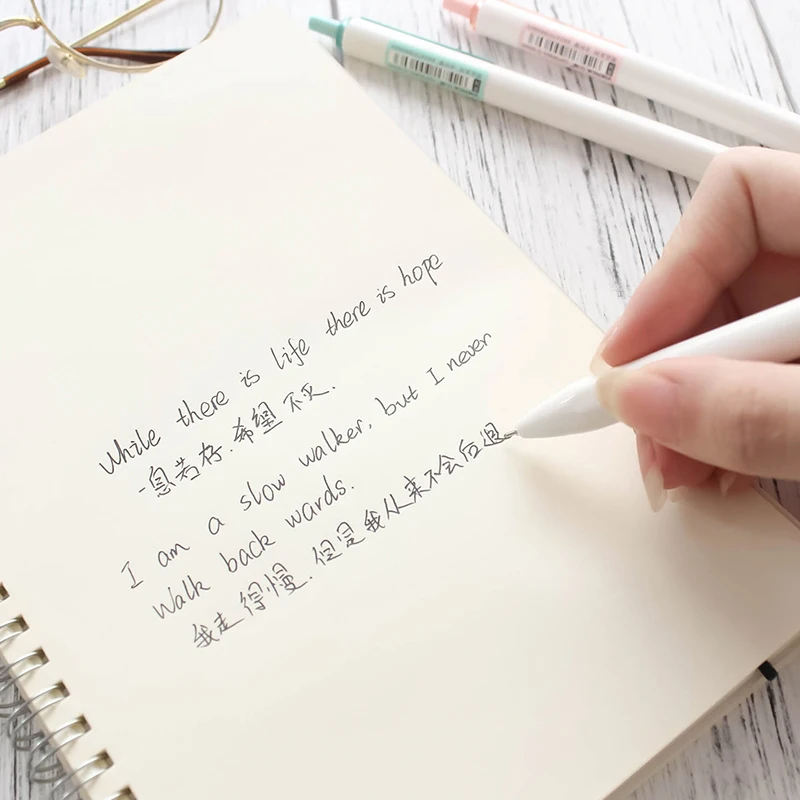 While there is life there is hope
一息若存.希望不灭.
I am a slow walker, but I never
Walk back wards.
我走得慢.但是我从来不会后退